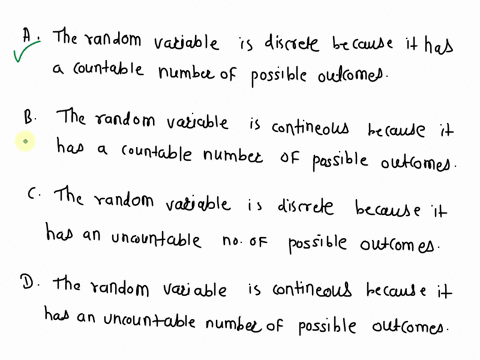 A. The random variable is discrete because it has
a countable number of possible outcomes.
B. The random variable is contineous because it
has a countable number of possible outcomes.
C. The random variable is discrete because it
has an uncountable no. of possible outcomes.
D. The random variable is contineous because it
has an uncountable number of possible outcomes.